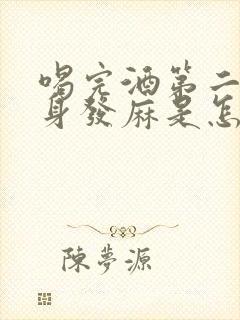 喝完酒第二
身發麻是怎
陳夢源